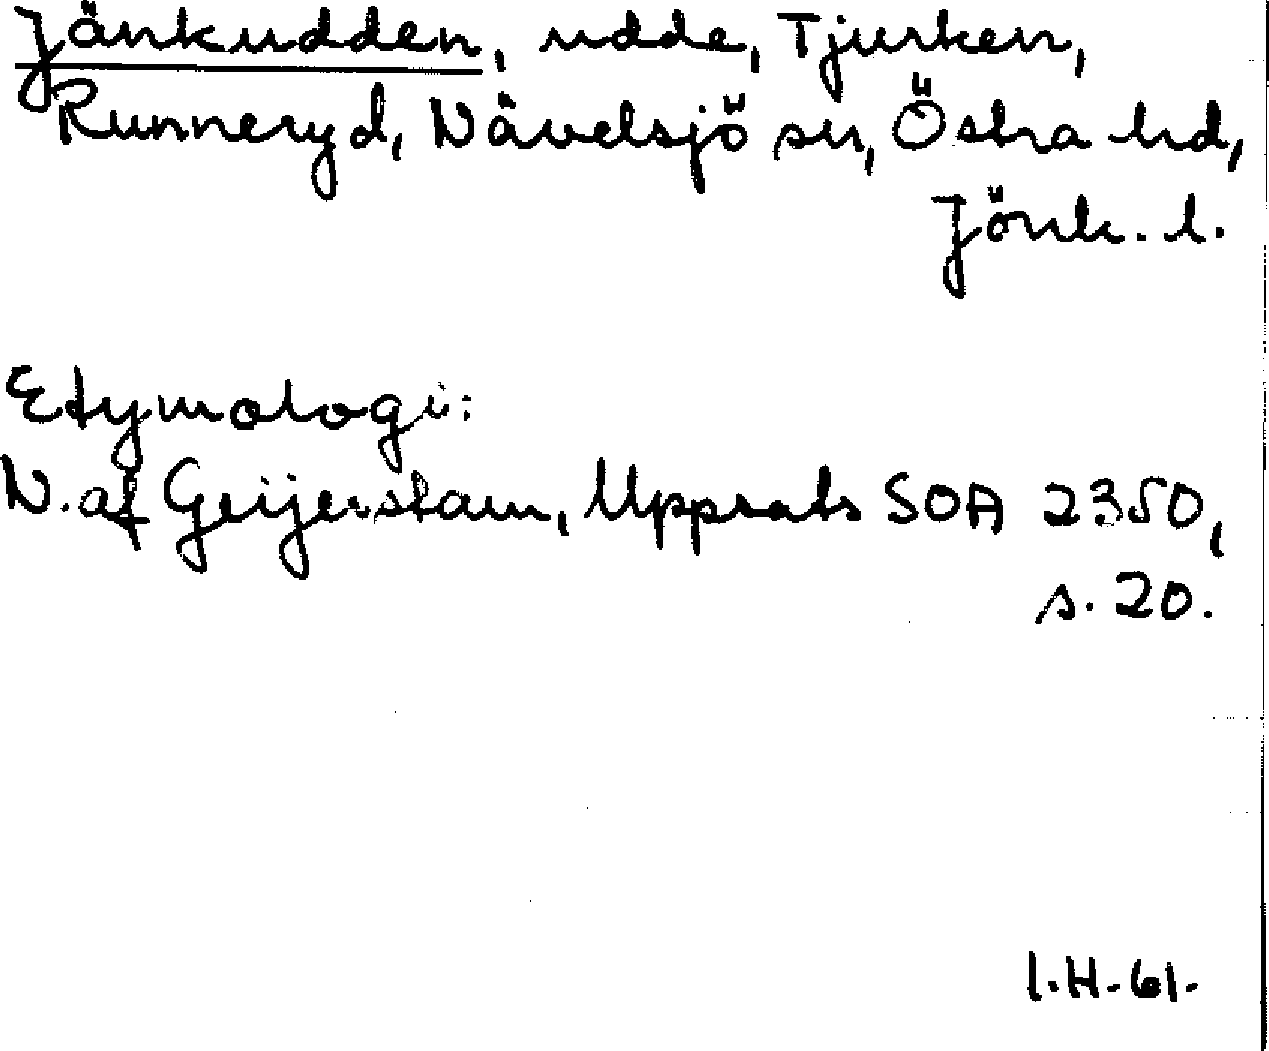 Jänkudden, udde, Tjurken,
Runneryd, Nävelsjö sn, Östra hd,
Jönk. l.
Etymologi:
N. af Geijerstam, Uppsats SOA 2350,
s. 20.
I.H. 61.